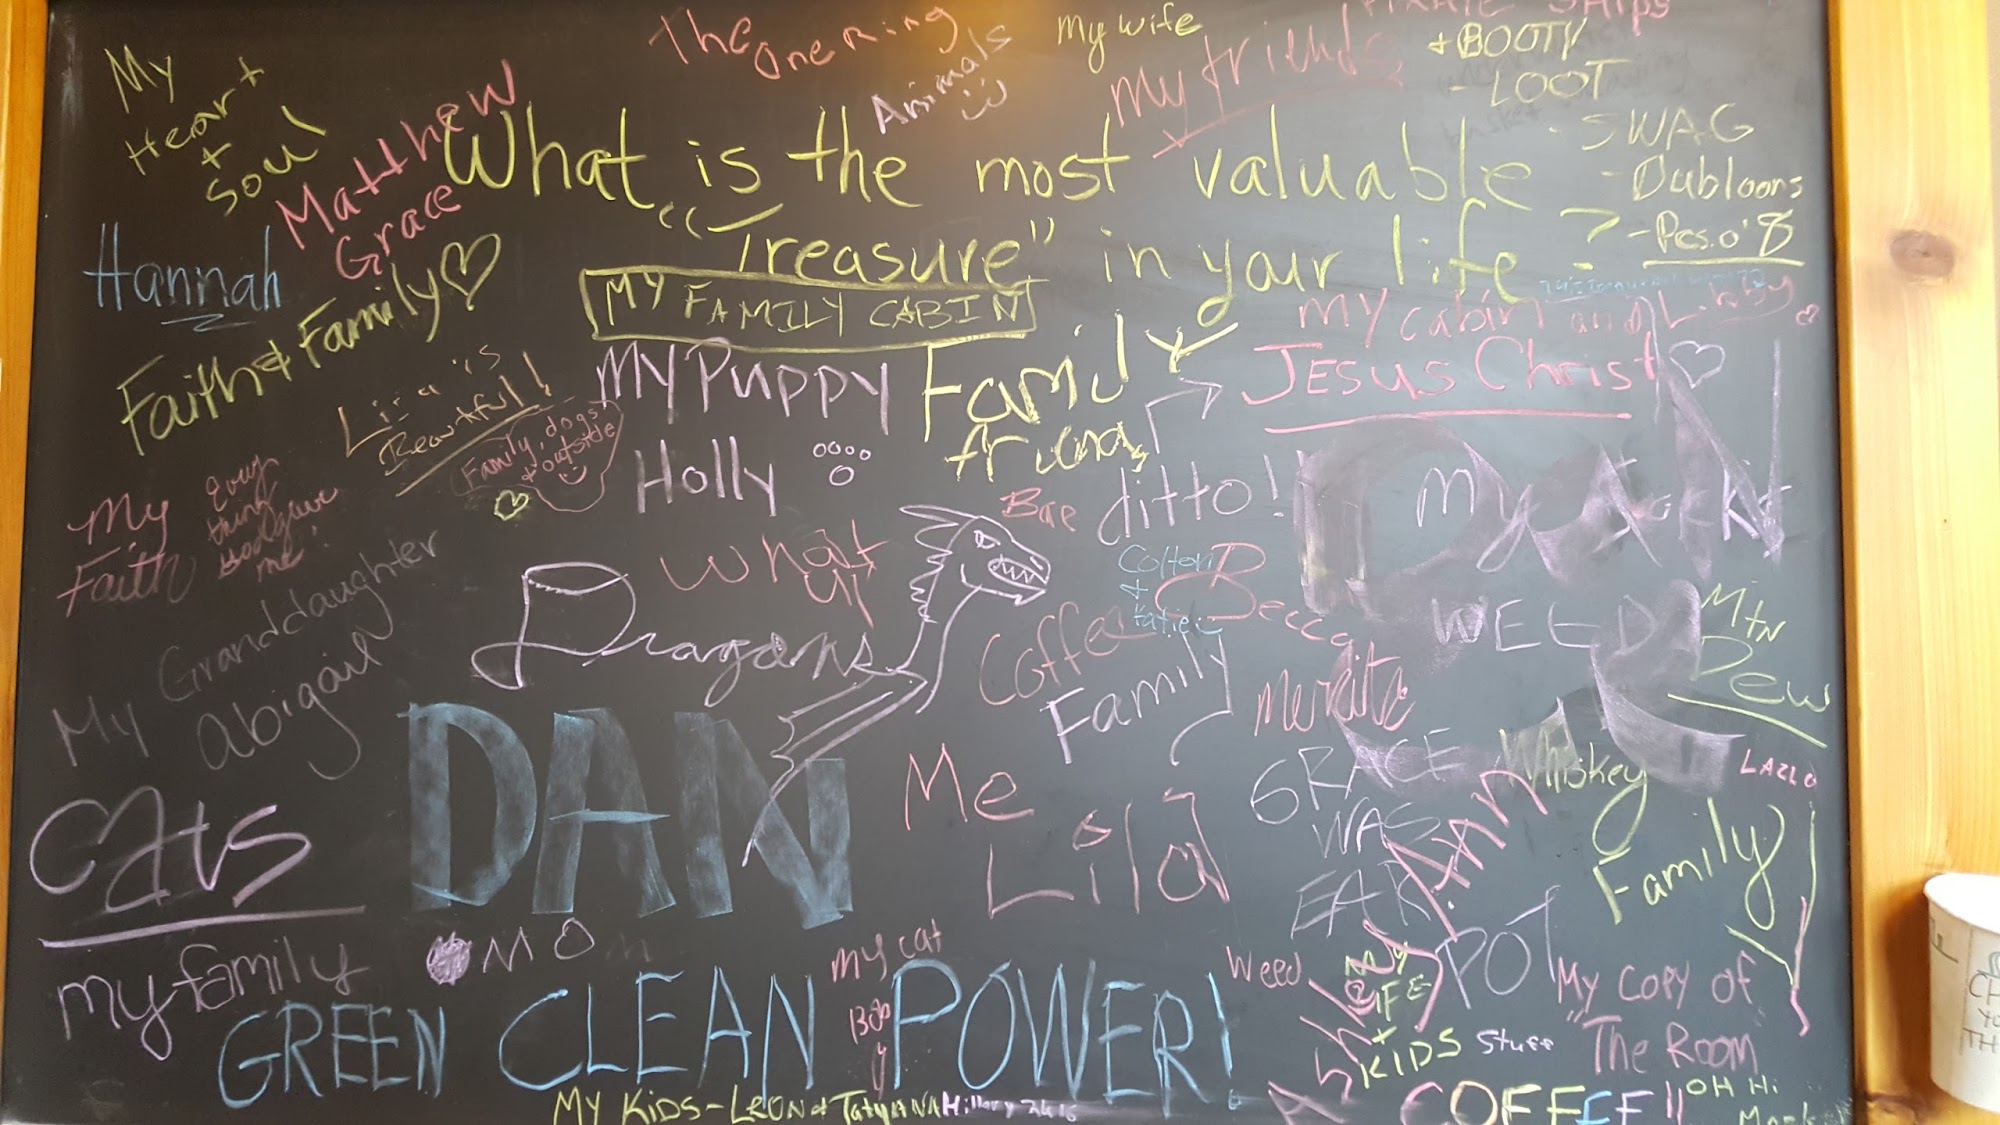 My
Heart
+
Soul
The one Ring
Animals
My wife
My friends
PIRATE SHIPS
+ BOOTY
- LOOT
- SWAG
- Dubloons
- Pcs. o' 8
Matthew
Grace
What is the most valuable
"Treasure" in your life ?
Hannah
Faith & Family
MY FAMILY CABIN
My cabin and Libby
JESUS CHRIST
My Puppy
Holly
Family
friends
ditto!
Lisa is
Beautiful!
Family, dogs,
+ outside
My
Faith
every
thing
God gave
me!
Bae
What
up
Dragons
Colton
+
Katie
Becca
Coffee
Family
WEED
Mtn
Dew
My Granddaughter
Abigail
DAN
Me
Lila
GRACE
WAS
Whiskey
LAZLO
Family
Cats
my family
MOM
my cat
GREEN CLEAN POWER!
Weed
Ashley
Ann
My
WIFE
+
KIDS
POT
Stuff
My Copy of
"The Room"
MY KIDS - LEON & TATYANA
Hillary 2016
COFFEE!!
OH Hi
Mark